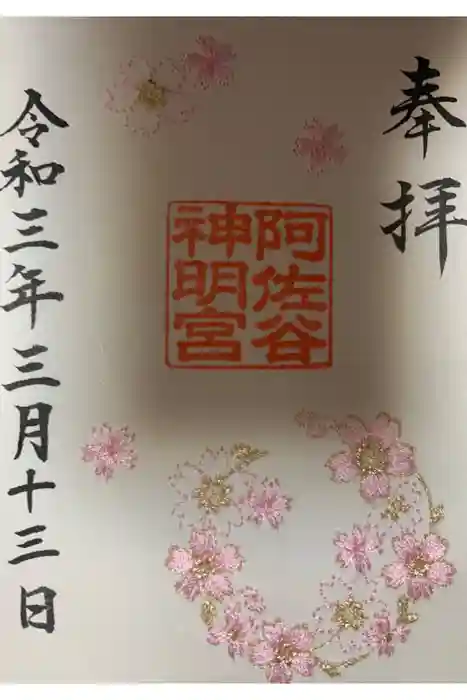 奉拝
阿佐谷
神明宮
令和三年三月十三日